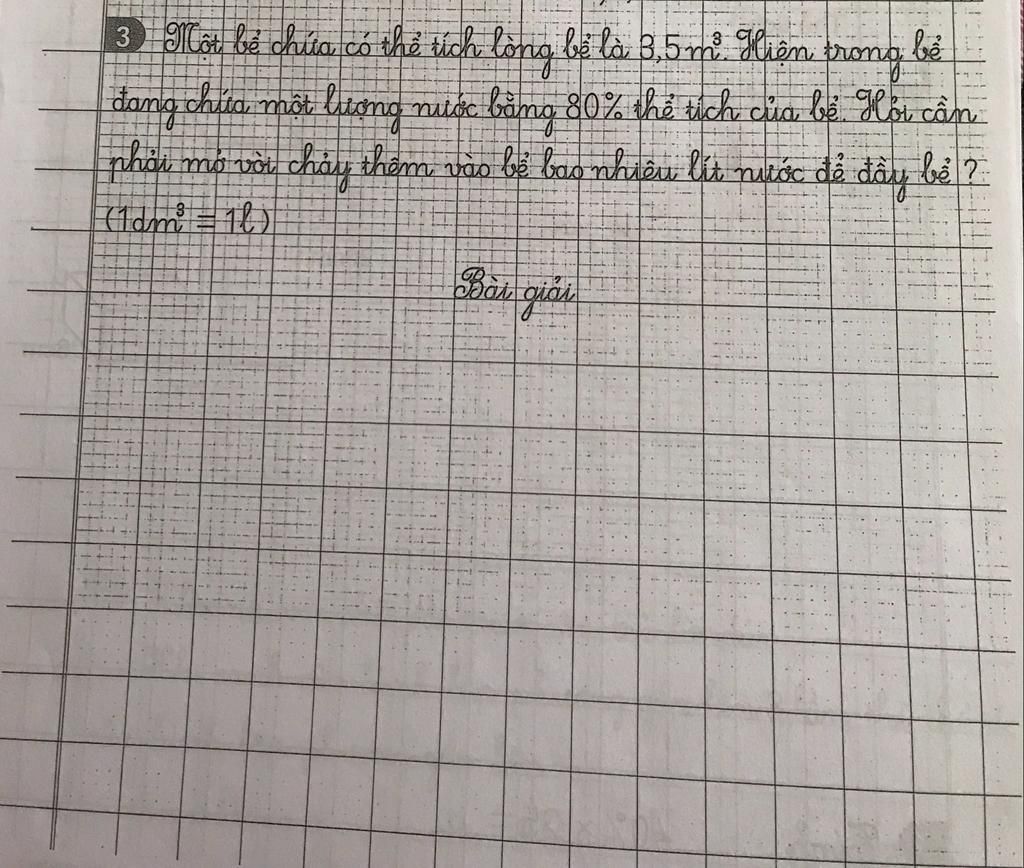 3 Một bể chứa có thể tích lòng bể là 3,5m³. Hiện trong bể
đang chứa một lượng nước bằng 80% thể tích của bể. Hỏi cần
phải mở vòi chảy thêm vào bể bao nhiêu lít nước để đầy bể?
(1dm³ = 1l)
Bài giải